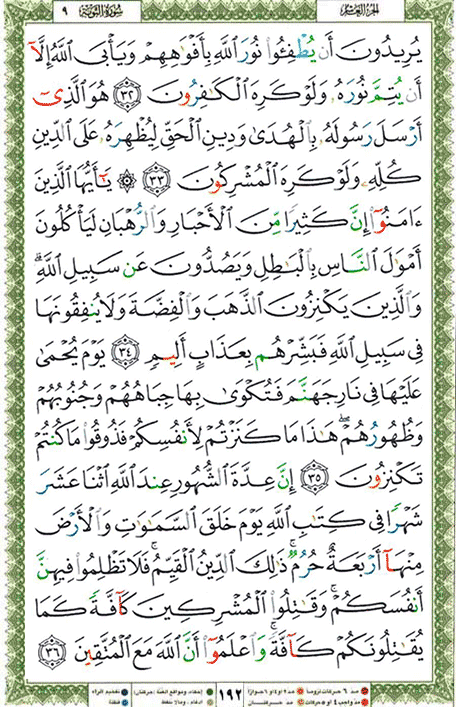 الجزء العاشر سورة التوبة ٩
يُرِيدُونَ أَن يُطْفِـُٔوا۟ نُورَ ٱللَّهِ بِأَفْوَٰهِهِمْ وَيَأْبَى ٱللَّهُ إِلَّآ
أَن يُتِمَّ نُورَهُۥ وَلَوْ كَرِهَ ٱلْكَٰفِرُونَ ٣٢ هُوَ ٱلَّذِىٓ
أَرْسَلَ رَسُولَهُۥ بِٱلْهُدَىٰ وَدِينِ ٱلْحَقِّ لِيُظْهِرَهُۥ عَلَى ٱلدِّينِ
كُلِّهِۦ وَلَوْ كَرِهَ ٱلْمُشْرِكُونَ ٣٣ ۞ يَٰٓأَيُّهَا ٱلَّذِينَ
ءَامَنُوٓا۟ إِنَّ كَثِيرًا مِّنَ ٱلْأَحْبَارِ وَٱلرُّهْبَانِ لَيَأْكُلُونَ
أَمْوَٰلَ ٱلنَّاسِ بِٱلْبَٰطِلِ وَيَصُدُّونَ عَن سَبِيلِ ٱللَّهِ ۗ
وَٱلَّذِينَ يَكْنِزُونَ ٱلذَّهَبَ وَٱلْفِضَّةَ وَلَا يُنفِقُونَهَا
فِى سَبِيلِ ٱللَّهِ فَبَشِّرْهُم بِعَذَابٍ أَلِيمٍ ٣٤ يَوْمَ يُحْمَىٰ
عَلَيْهَا فِى نَارِ جَهَنَّمَ فَتُكْوَىٰ بِهَا جِبَاهُهُمْ وَجُنُوبُهُمْ
وَظُهُورُهُمْ ۖ هَٰذَا مَا كَنَزْتُمْ لِأَنفُسِكُمْ فَذُوقُوا۟ مَا كُنتُمْ
تَكْنِزُونَ ٣٥ إِنَّ عِدَّةَ ٱلشُّهُورِ عِندَ ٱللَّهِ ٱثْنَا عَشَرَ
شَهْرًا فِى كِتَٰبِ ٱللَّهِ يَوْمَ خَلَقَ ٱلسَّمَٰوَٰتِ وَٱلْأَرْضَ
مِنْهَآ أَرْبَعَةٌ حُرُمٌ ۚ ذَٰلِكَ ٱلدِّينُ ٱلْقَيِّمُ ۚ فَلَا تَظْلِمُوا۟ فِيهِنَّ
أَنفُسَكُمْ ۚ وَقَٰتِلُوا۟ ٱلْمُشْرِكِينَ كَآفَّةً كَمَا
يُقَٰتِلُونَكُمْ كَآفَّةً ۚ وَٱعْلَمُوٓا۟ أَنَّ ٱللَّهَ مَعَ ٱلْمُتَّقِينَ ٣٦
مد ٦ حركات لزوما مد ٢ أو ٤ أو ٦ جوازا ١٩٢ إخفاء، ومواقع الغنة (حركتان) تفخيم الراء
مد واجب ٤ أو ٥ حركات مد حركتان إدغام، وما لا يلفظ قلقلة